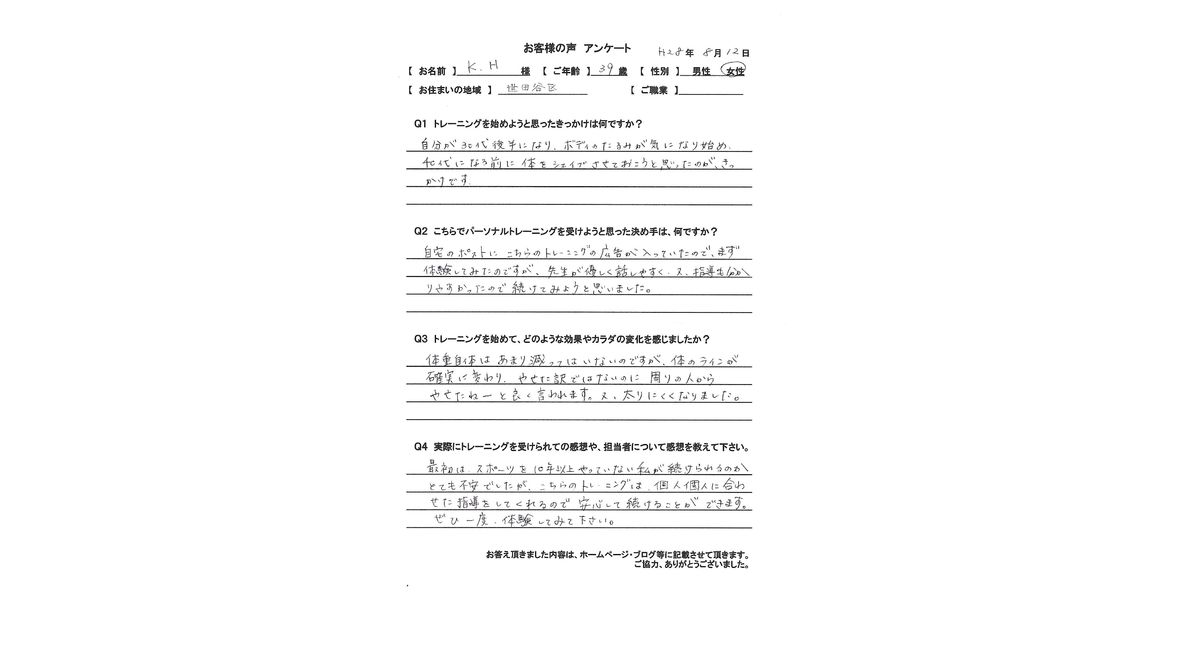 お客様の声 アンケート
H28年 8月12日
【 お名前 】 K.H 様 【 ご年齢 】 39 歳 【 性別 】 男性 女性
【 お住まいの地域 】 世田谷区 【 ご職業 】
Q1 トレーニングを始めようと思ったきっかけは何ですか?
自分が30代後半になり、ボディのたるみが気になり始め、
40代になる前に体をシェイプさせておこうと思ったのが、きっ
かけです。
Q2 こちらでパーソナルトレーニングを受けようと思った決め手は、何ですか?
自宅のポストにこちらのトレーニングの広告が入っていたので、まず
体験してみたのですが、先生が優しく話しやすく、又、指導も分か
りやすかったので続けてみようと思いました。
Q3 トレーニングを始めて、どのような効果やカラダの変化を感じましたか?
体重自体はあまり減ってはいないのですが、体のラインが
確実に変わり、やせた訳ではないのに周りの人から
やせたねーと良く言われます。又、太りにくくなりました。
Q4 実際にトレーニングを受けられての感想や、担当者について感想を教えて下さい。
最初は、スポーツを10年以上やっていない私が続けられるのか
とても不安でしたが、こちらのトレーニングは、個人個人に合わ
せた指導をしてくれるので安心して続けることができます。
ぜひ一度、体験してみて下さい。
お答え頂きました内容は、ホームページ・ブログ等に記載させて頂きます。
ご協力、ありがとうございました。